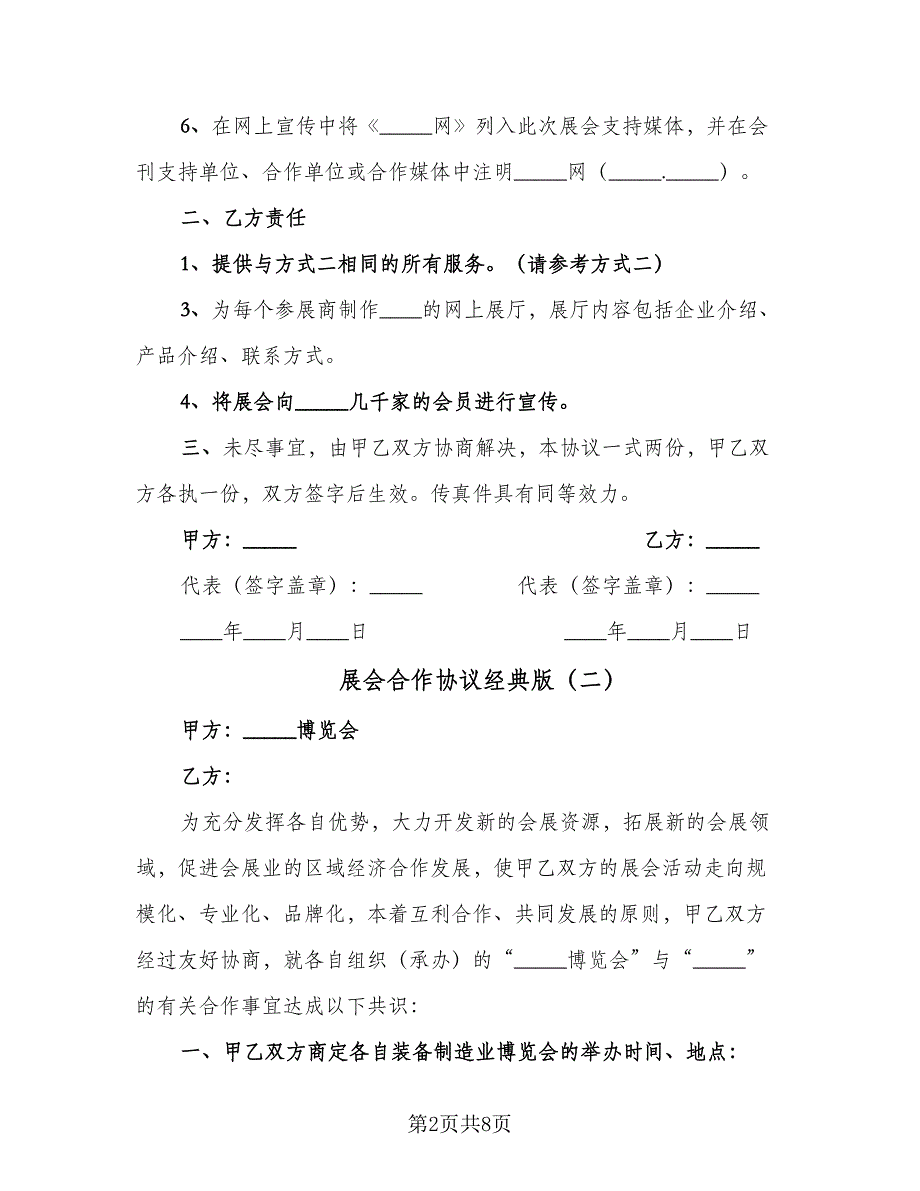 6、在网上宣传中将《_____网》列入此次展会支持媒体，并在会
刊支持单位、合作单位或合作媒体中注明_____网（_____._____）。
二、乙方责任
1、提供与方式二相同的所有服务。（请参考方式二）
3、为每个参展商制作____的网上展厅，展厅内容包括企业介绍、
产品介绍、联系方式。
4、将展会向_____几千家的会员进行宣传。
三、未尽事宜，由甲乙双方协商解决，本协议一式两份，甲乙双
方各执一份，双方签字后生效。传真件具有同等效力。
甲方：_____ 乙方：_____
代表（签字盖章）：_____ 代表（签字盖章）：_____
____年____月____日 ____年____月____日
展会合作协议经典版（二）
甲方：_____博览会
乙方：
为充分发挥各自优势，大力开发新的会展资源，拓展新的会展领
域，促进会展业的区域经济合作发展，使甲乙双方的展会活动走向规
模化、专业化、品牌化，本着互利合作、共同发展的原则，甲乙双方
经过友好协商，就各自组织（承办）的“_____博览会”与“_____”
的有关合作事宜达成以下共识：
一、甲乙双方商定各自装备制造业博览会的举办时间、地点：
第2页共8页